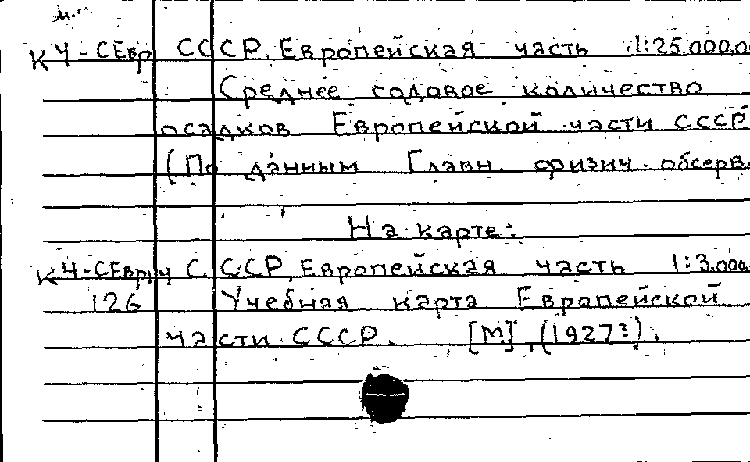 К Ч-СЕвр СССР, Европейская часть 1:25.000.0
Среднее годовое количество
осадков Европейской части СССР
(По данным Главн. физич. обсерв.
На карте:
К Ч-СЕвр.ч СССР, Европейская часть 1:3.000.
126 Учебная карта Европейской
части СССР. [М], (1927?).